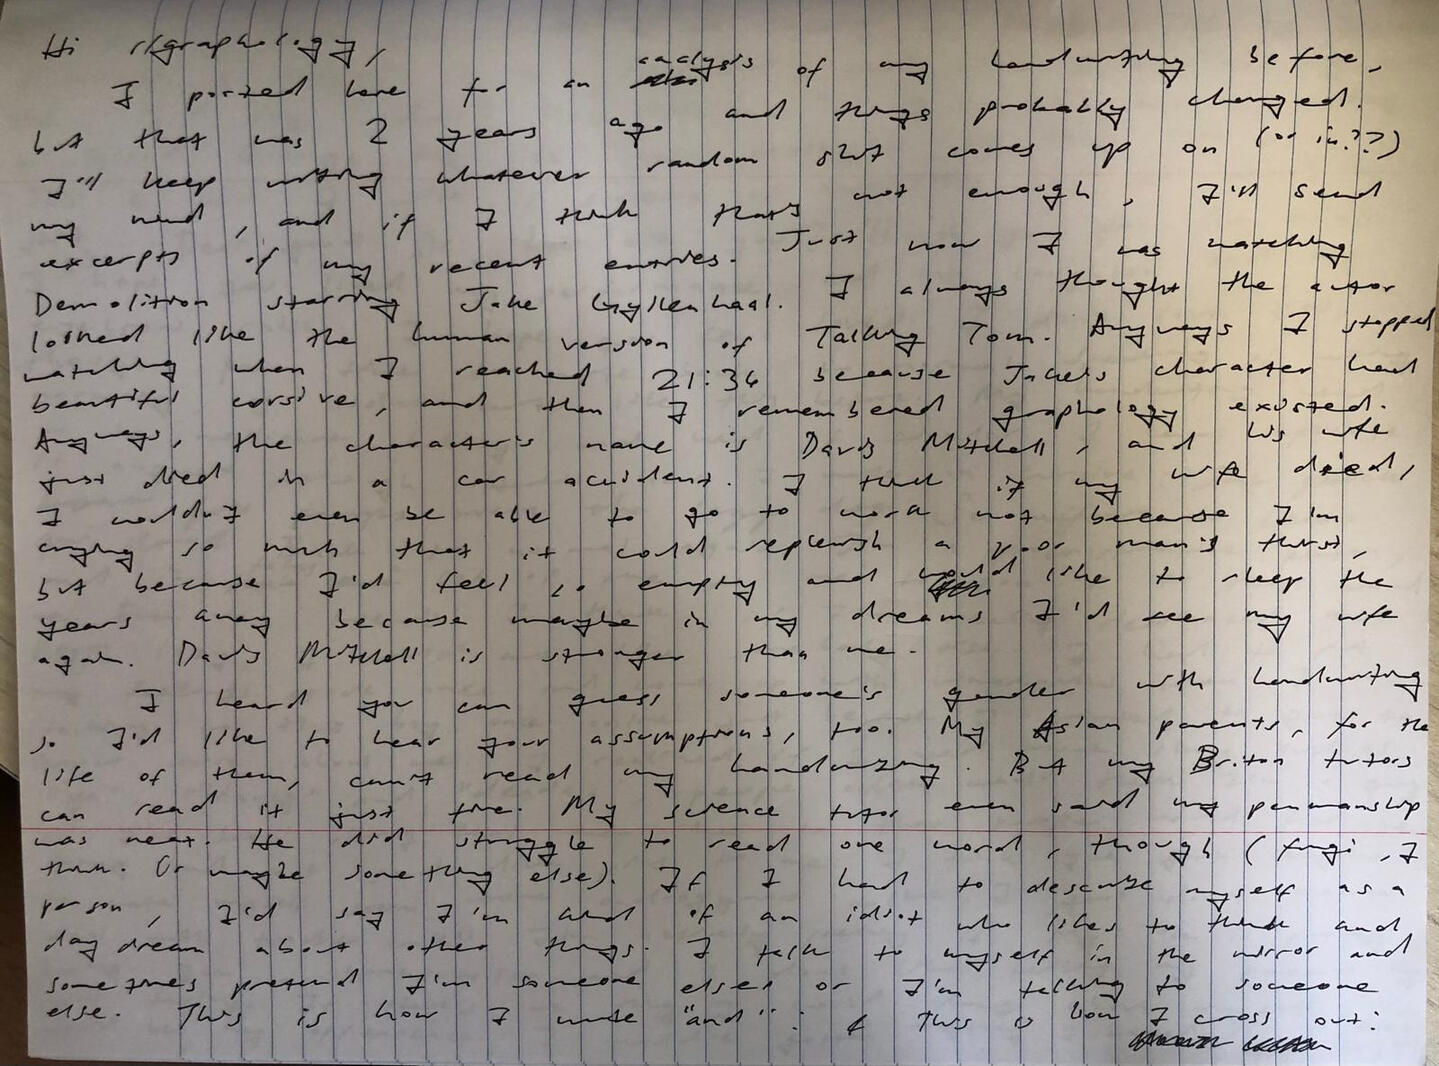 Hi r/graphology,
I posted here for an analysis of my handwriting before,
but that was 2 years ago and things probably changed.
I'll keep writing whatever random shit comes up on (or in??)
my mind, and if I think that's not enough, I'll send
excerpts of my recent entries. Just now I was watching
Demolition starring Jake Gyllenhaal. I always thought the autor
looked like the human version of Talking Tom. Anyways I stopped
watching when I reached 21:36 because Jake's character had
beautiful corsive, and then I remembered graphology existed.
Anyways, the character's name is Davis Mitchell, and his wife
just died in a car accident. I think if my wife died,
I wouldn't even be able to go to work not because I'm
crying so much that it could replenish a poor man's thirst,
but because I'd feel so empty and would like to sleep the
years away because maybe in my dreams I'd see my wife
again. Davis Mitchell is stronger than me.
I heard you can guess someone's gender with handwriting
so I'd like to hear your assumptions, too. My Asian parents, for the
life of them, can't read my handwriting. But my Briton tutors
can read it just fine. My science tutor even said my penmanship
was neat. He did struggle to read one word, though (fungi, I
think. Or maybe something else). If I had to describe myself as a
person, I'd say I'm kind of an idiot who likes to think and
day dream about other things. I talk to myself in the mirror and
sometimes pretend I'm someone else or I'm talking to someone
else. This is how I write "and": & This is how I cross out: